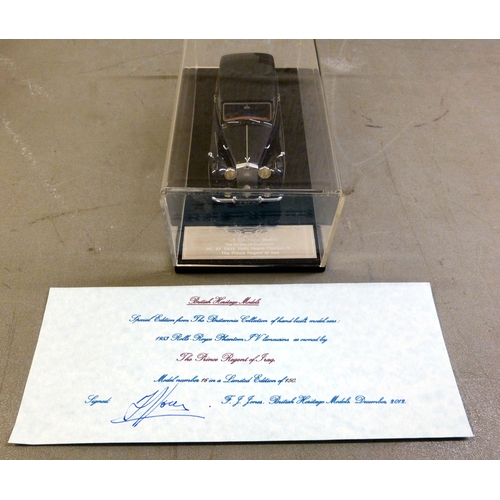 The Prince Regent of Iraq
British Heritage Models
Special Edition from The Britannia Collection of hand built model cars :
1953 Rolls Royce Phantom IV limousine as owned by
The Prince Regent of Iraq.
Model number 16 in a Limited Edition of 250.
Signed F. J. Jones. British Heritage Models. December, 2012.